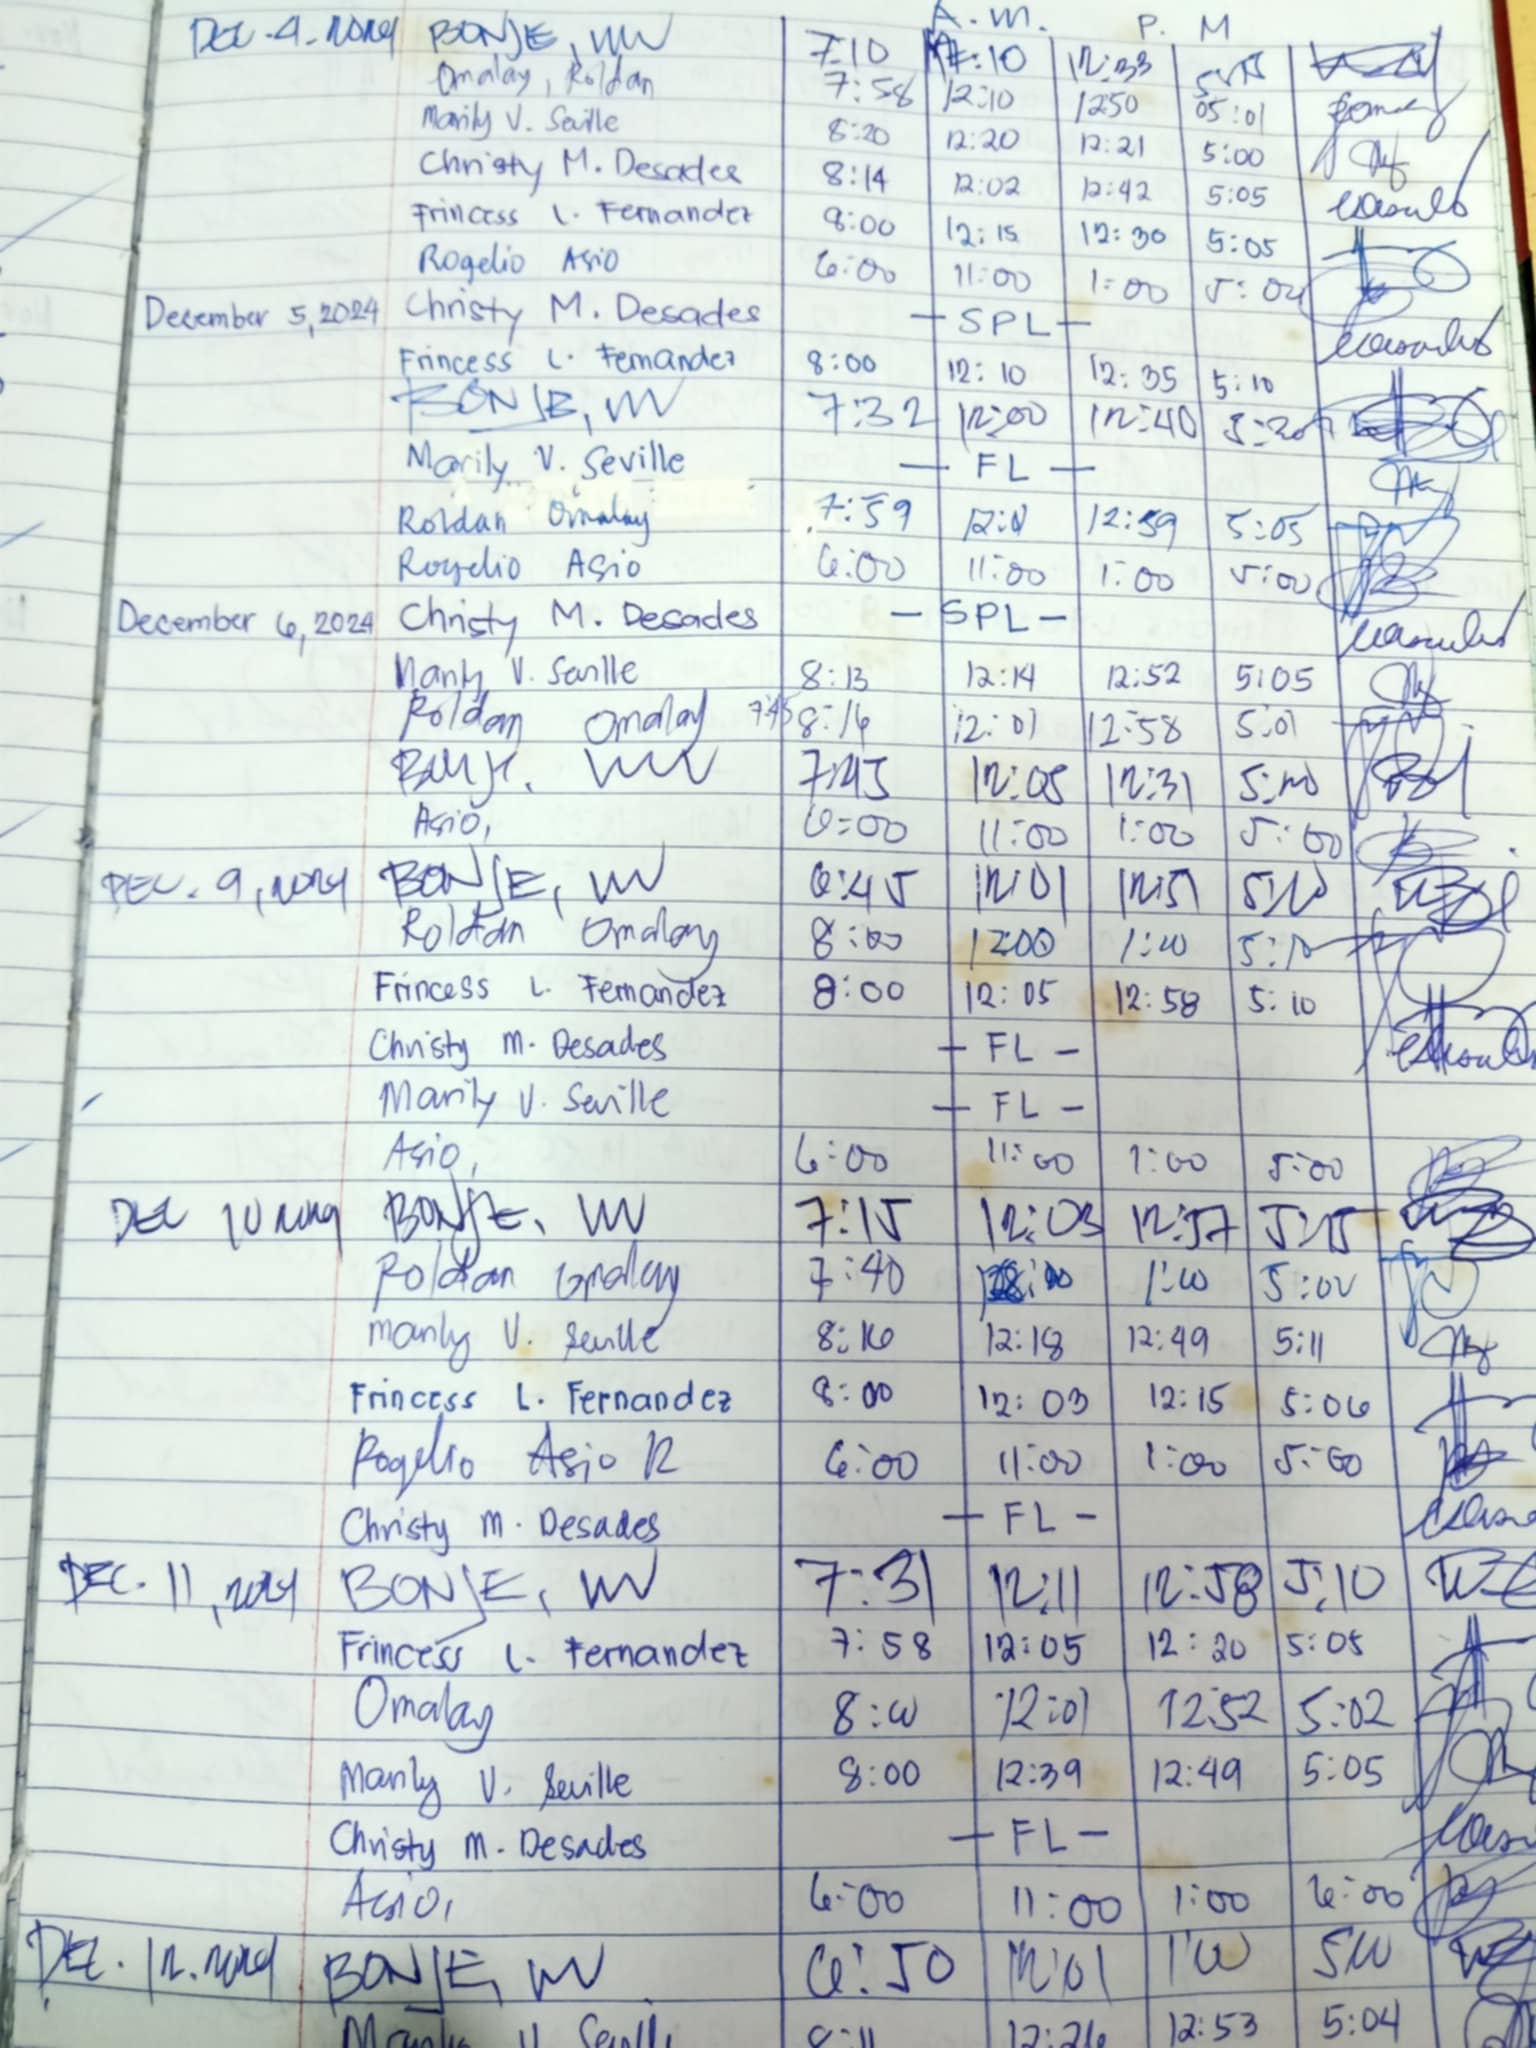 A.M. P.M
DEC. 4. 2024 BONJE, WV 7:10 12:10 12:33
Omalay, Roldan 7:58 12:10 1250 05:01
Marily V. Seville 8:20 12:20 12:21 5:00
Christy M. Desades 8:14 12:02 12:42 5:05
Frincess L. Fernandez 8:00 12:15 12:30 5:05
Rogelio Asio 6:00 11:00 1:00
December 5, 2024 Christy M. Desades - SPL -
Frincess L. Fernandez 8:00 12:10 12:35 5:10
BONJE, WV 7:32 12:00 12:40
Marily V. Seville - FL -
Roldan Omalay 7:59 12:59 5:05
Rogelio Asio 6:00 11:00 1:00 5:00
December 6, 2024 Christy M. Desades - SPL -
Marily V. Seville 8:13 12:14 12:52 5:05
Roldan Omalay 7:45 8:16 12:01 12:58 5:01
WV 7:45 12:05 12:31
Asio, 6:00 11:00 1:00 5:00
DEC. 9, 2024 BONJE, WV 6:45 12:01 12:51
Roldan Omalay 8:00 1200 1:00
Frincess L. Fernandez 8:00 12:05 12:58 5:10
Christy M. Desades - FL -
Marily V. Seville - FL -
Asio, 6:00 11:00 1:00 5:00
DEC 10 2024 BONJE, WV 7:15 12:03 12:57 5:15
Roldan Omalay 7:40 1:00
Marily V. Seville 8:16 12:18 12:49 5:11
Frincess L. Fernandez 8:00 12:03 12:15 5:06
Rogelio Asio R 6:00 11:00 1:00 5:00
Christy M. Desades - FL -
DEC. 11, 2024 BONJE, WV 7:31 12:11 12:58 5:10
Frincess L. Fernandez 7:58 12:05 12:20 5:05
Omalay 8:00 12:01 12:52 5:02
Marily V. Seville 8:00 12:39 12:49 5:05
Christy M. Desades - FL -
Asio, 6:00 11:00 1:00 6:00
DEC. 12. 2024 BONJE, WV 6:50 12:01 1:00 5:00
Marily V. Seville 8:11 12:26 12:53 5:04